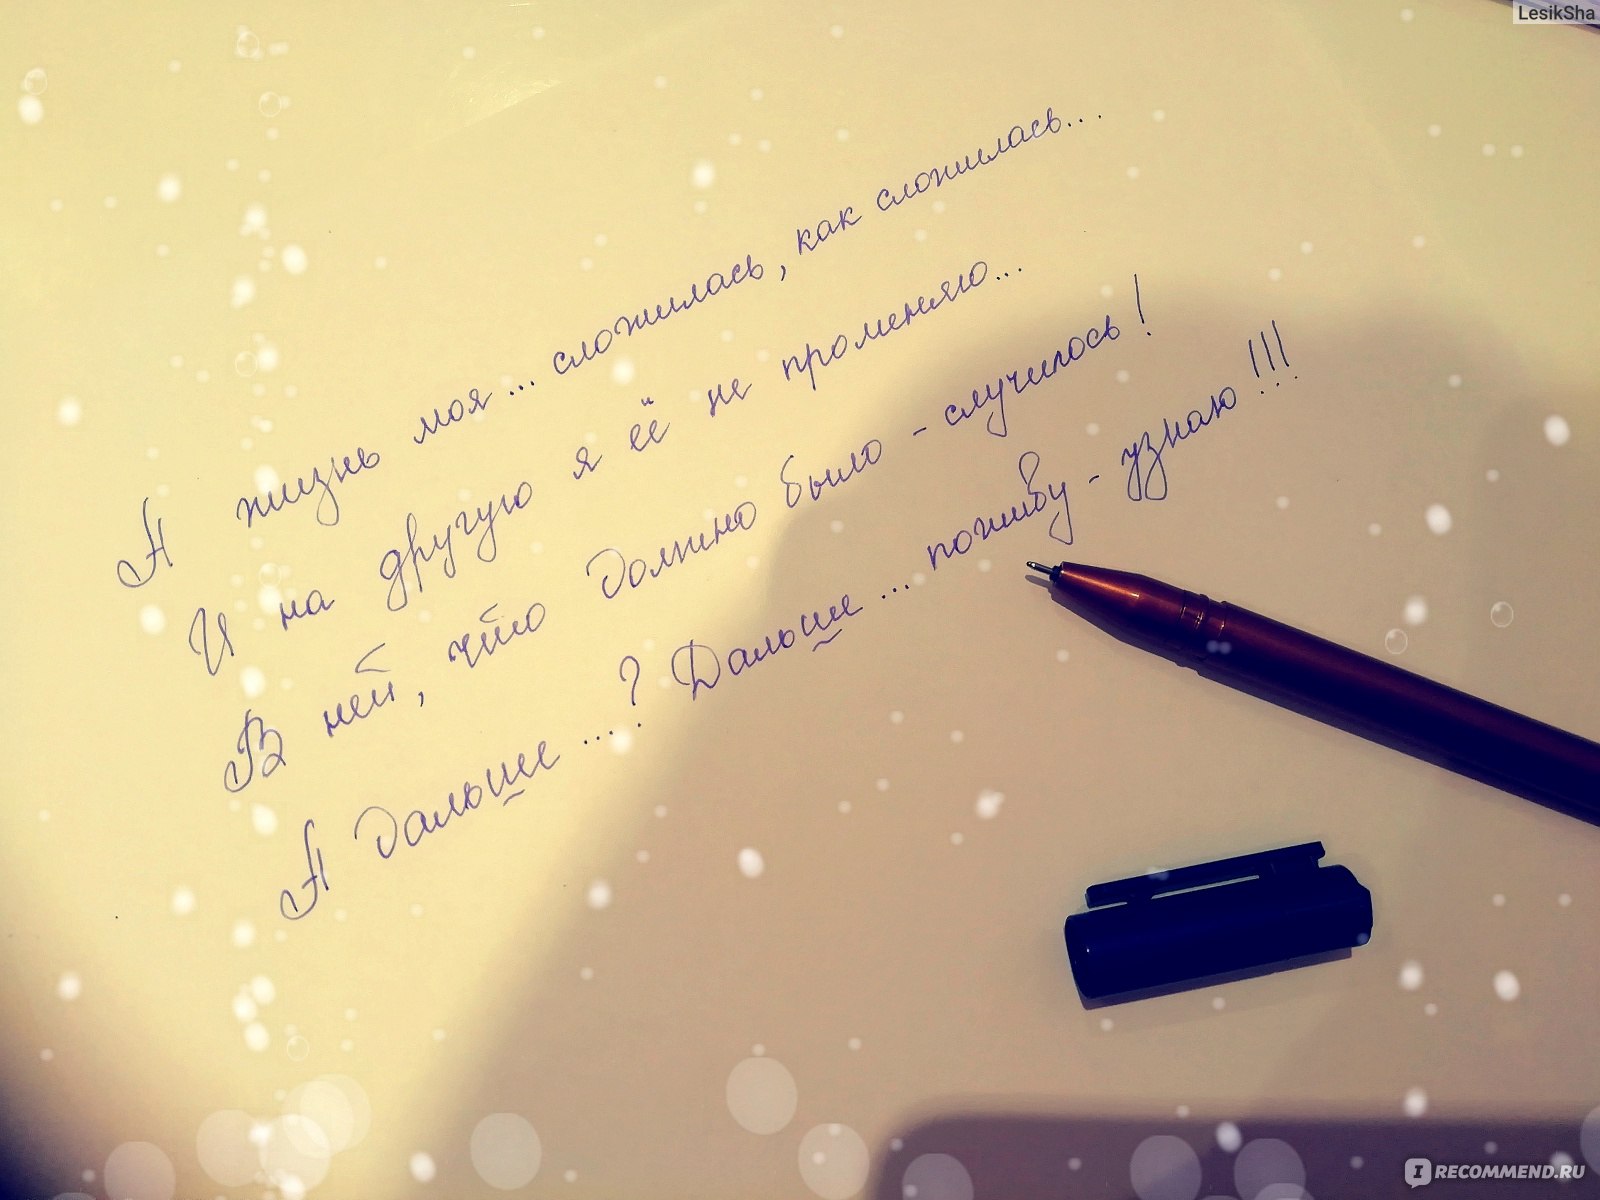 LesikSha
А жизнь моя... сложилась, как сложилась...
И на другую я её не променяю...
В ней, что должно было - случилось!
А дальше ...? Дальше ... поживу - узнаю!!!
IRECOMMEND.RU